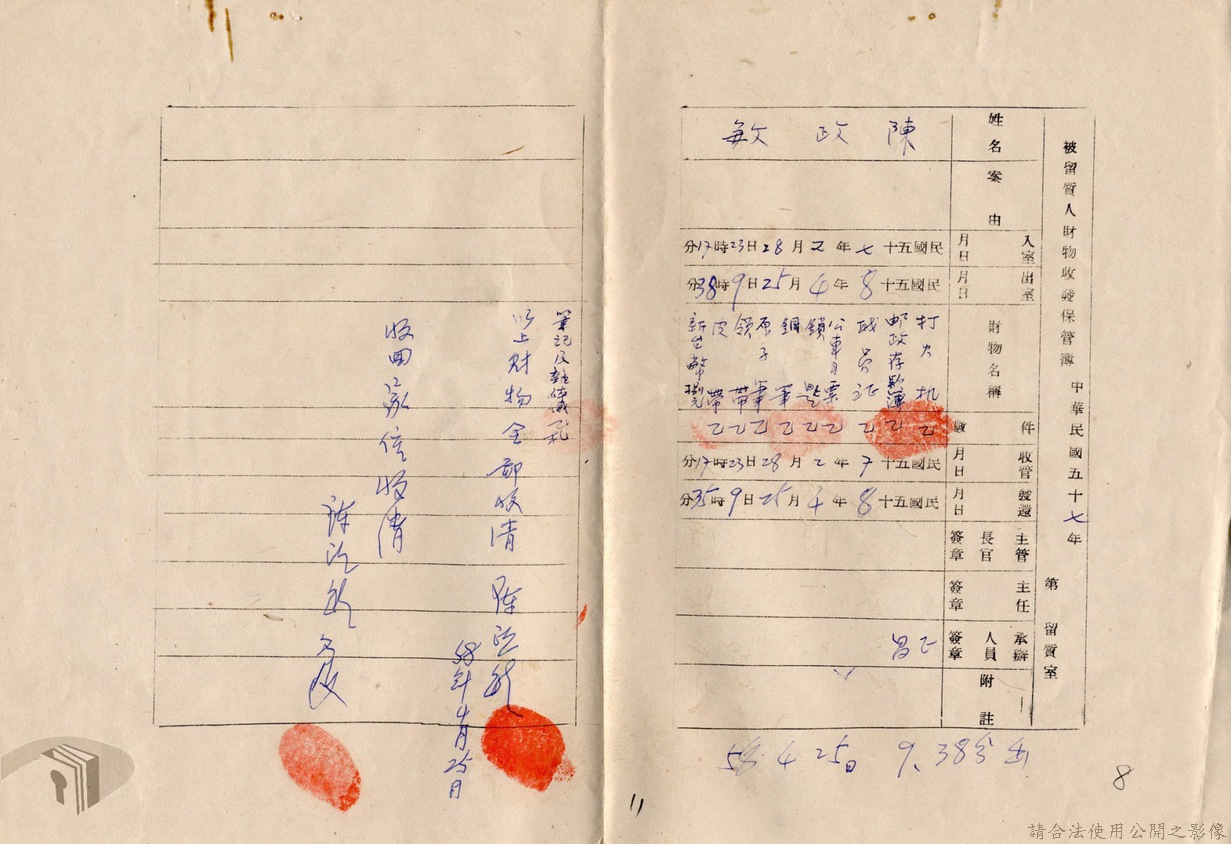 被留質人財物收發保管簿 中華民國五十七年
第 留質室
姓名 陳政敏
案由
入室 月日 民國五十七年2月28日23時17分
出室 月日 民國五十8年4月25日9時38分
財物名稱
打火机
邮政存款簿
职員证
公車月票
鎖匙
鋼筆
原子筆
領帶
皮帶
新台幣
件數 乙 乙 乙 乙 乙 乙 乙 乙 乙
收管 月日 民國五十7年2月28日23時17分
發還 月日 民國五十8年4月25日9時35分
主管長官簽章
主任簽章
承辦人員簽章
附註
58.4.25日 9.38分出
8
筆記及
以上財物全部收清 陳政敏
58年4月25日
收回家信收清
陳政敏
11
請合法使用公開之影像